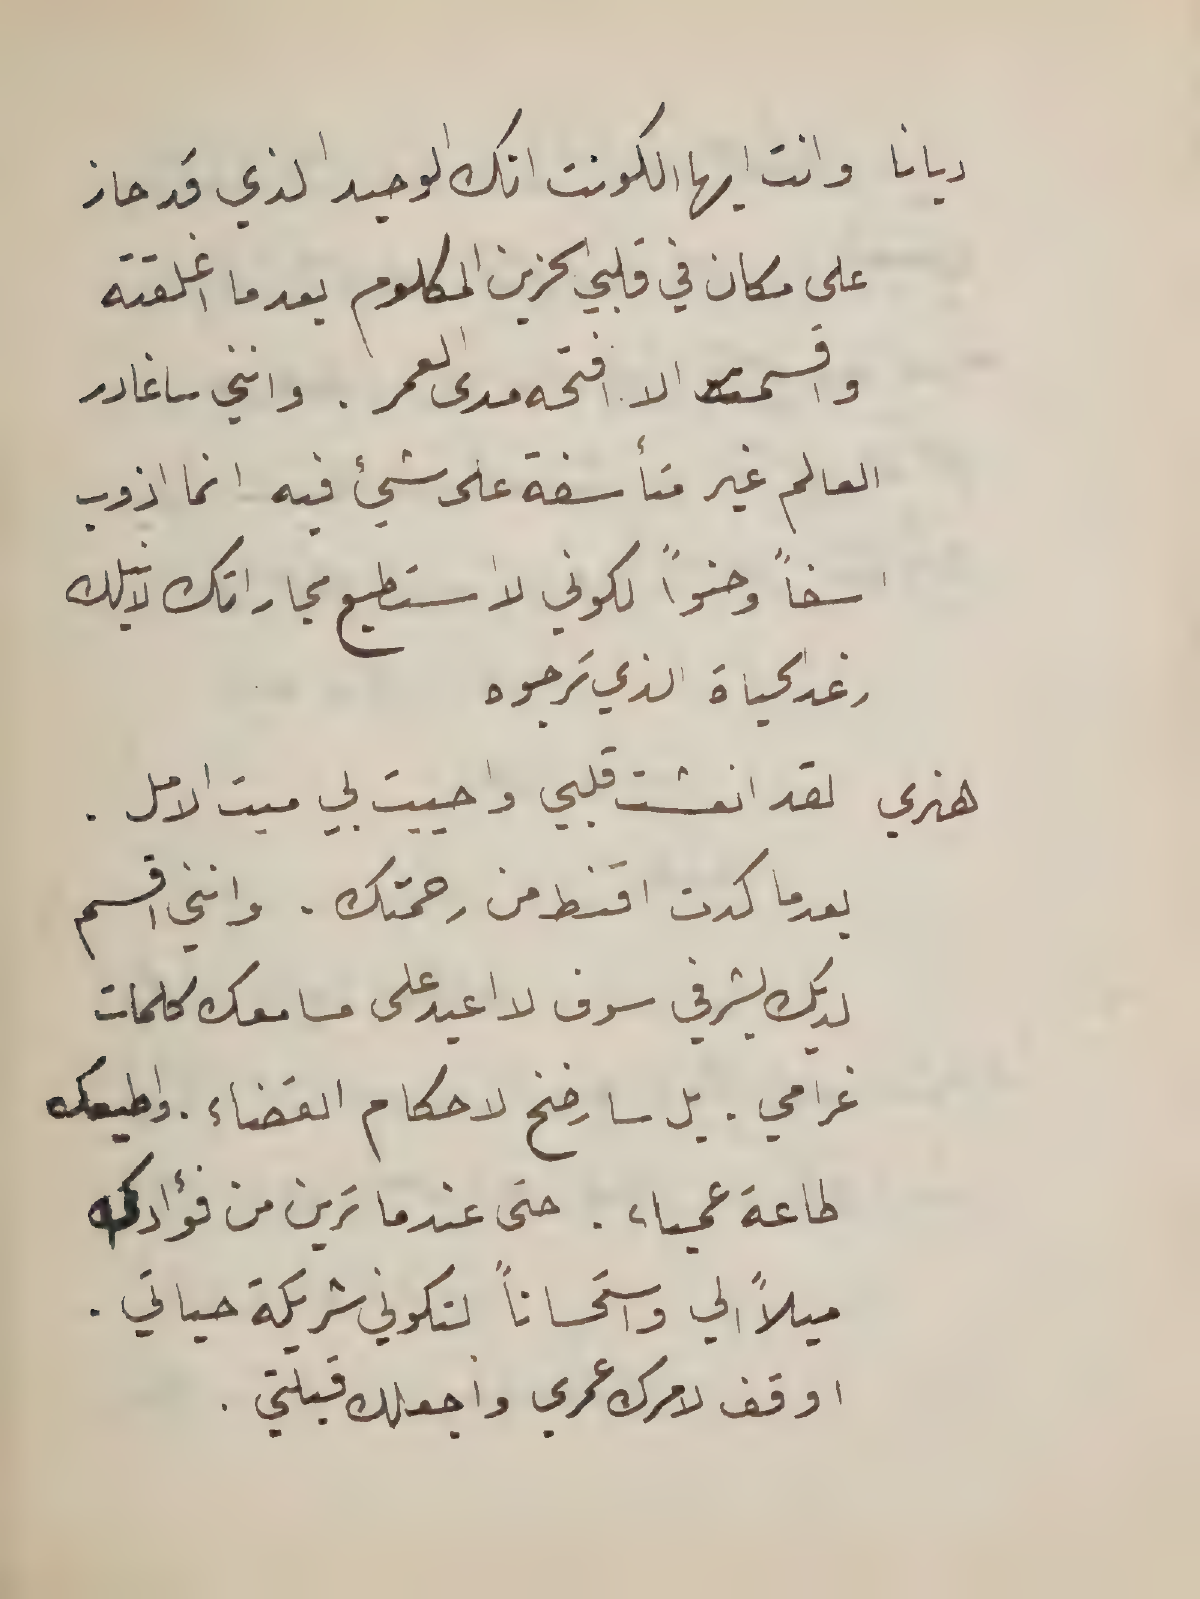 ديانا وانت ايها الكونت انك الوحيد الذي قد حاز
على مكان في قلبي الحزين المكلوم بعد ما اغلقته
واقسمت الا افتحه مدى العمر . وانني ساغادر
العالم غير متأسفة على شيئ فيه انما اذوب
اسفاً وحنواً لكوني لا استطيع مجاراتك لانيلك
رغد الحياة الذي ترجوه
هنري لقد انعشت قلبي واحييت لي ميت الامل .
بعدما كدت اقنط من رحمتك . وانني اقسم
لديك بشرفي سوف لا اعيد على مسامعك كلمات
غرامي . بل سارضخ لاحكام القضاء . واطيعك
طاعة عمياء . حتى عندما ترين من فؤادك
ميلاً الي واستحساناً لتكوني شريكة حياتي .
اوقف لامرك عمري واجعلك قبلتي .